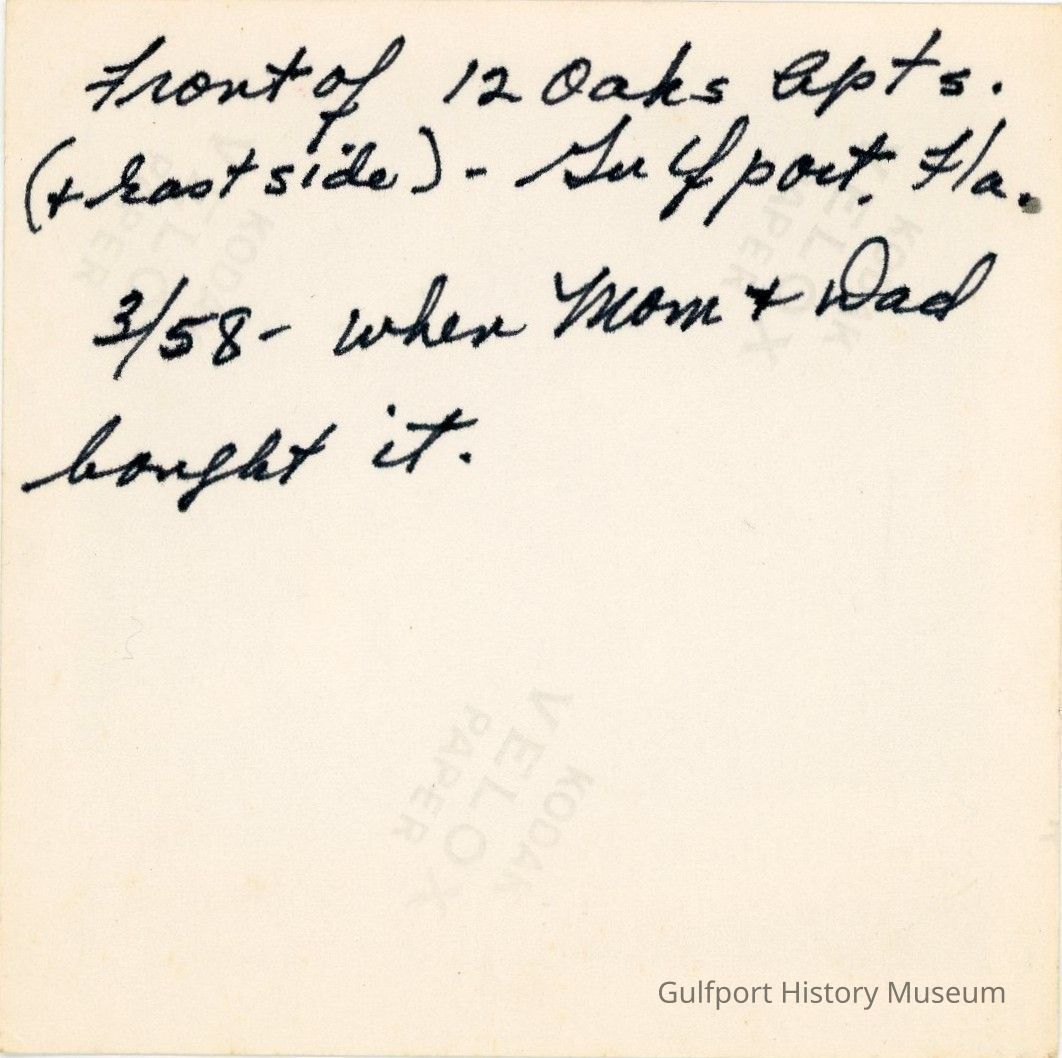 Front of 12 Oaks Apts.
(+ East side) - Gulfport, Fla.
3/58 - when Mom + Dad
bought it.
KODAK
VELOX
PAPER
KODAK
VELOX
PAPER
KODAK
VELOX
PAPER
Gulfport History Museum